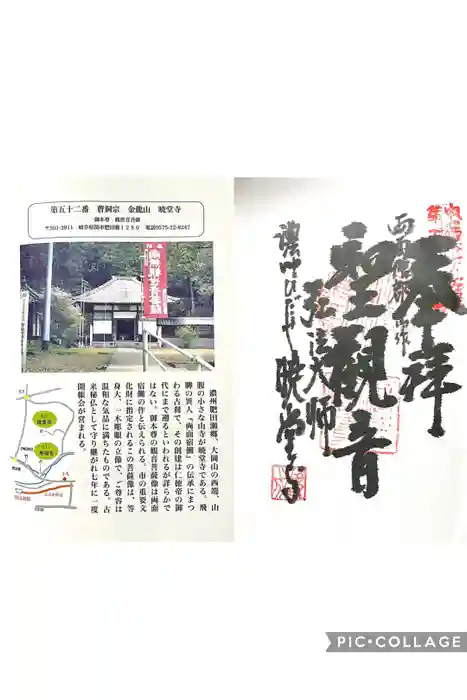 第五十二番 曹洞宗 金龍山 暁堂寺
御本尊 観世音菩薩
〒501-3911 岐阜県関市肥田瀬1280 電話0575-22-8247
濃州肥田瀬郷、大岡山の西端、山
腹の小さな山寺が暁堂寺である。飛
騨の異人「両面宿儺」の伝承にまつ
わる古刹で、その創建は仁徳帝の御
代にまで遡るといわれるが詳らかで
はない。御本尊の観音菩薩像は両面
宿儺の作と伝えられる。市の重要文
化財に指定されるこの菩薩像は、等
身大、一木彫眼の立像で、ご尊容は
温和な気品に満ちたものである。古
来秘仏として守り継がれ七年に一度
開帳会が営まれる。
奉拝
聖観音
暁堂寺
PIC•COLLAGE